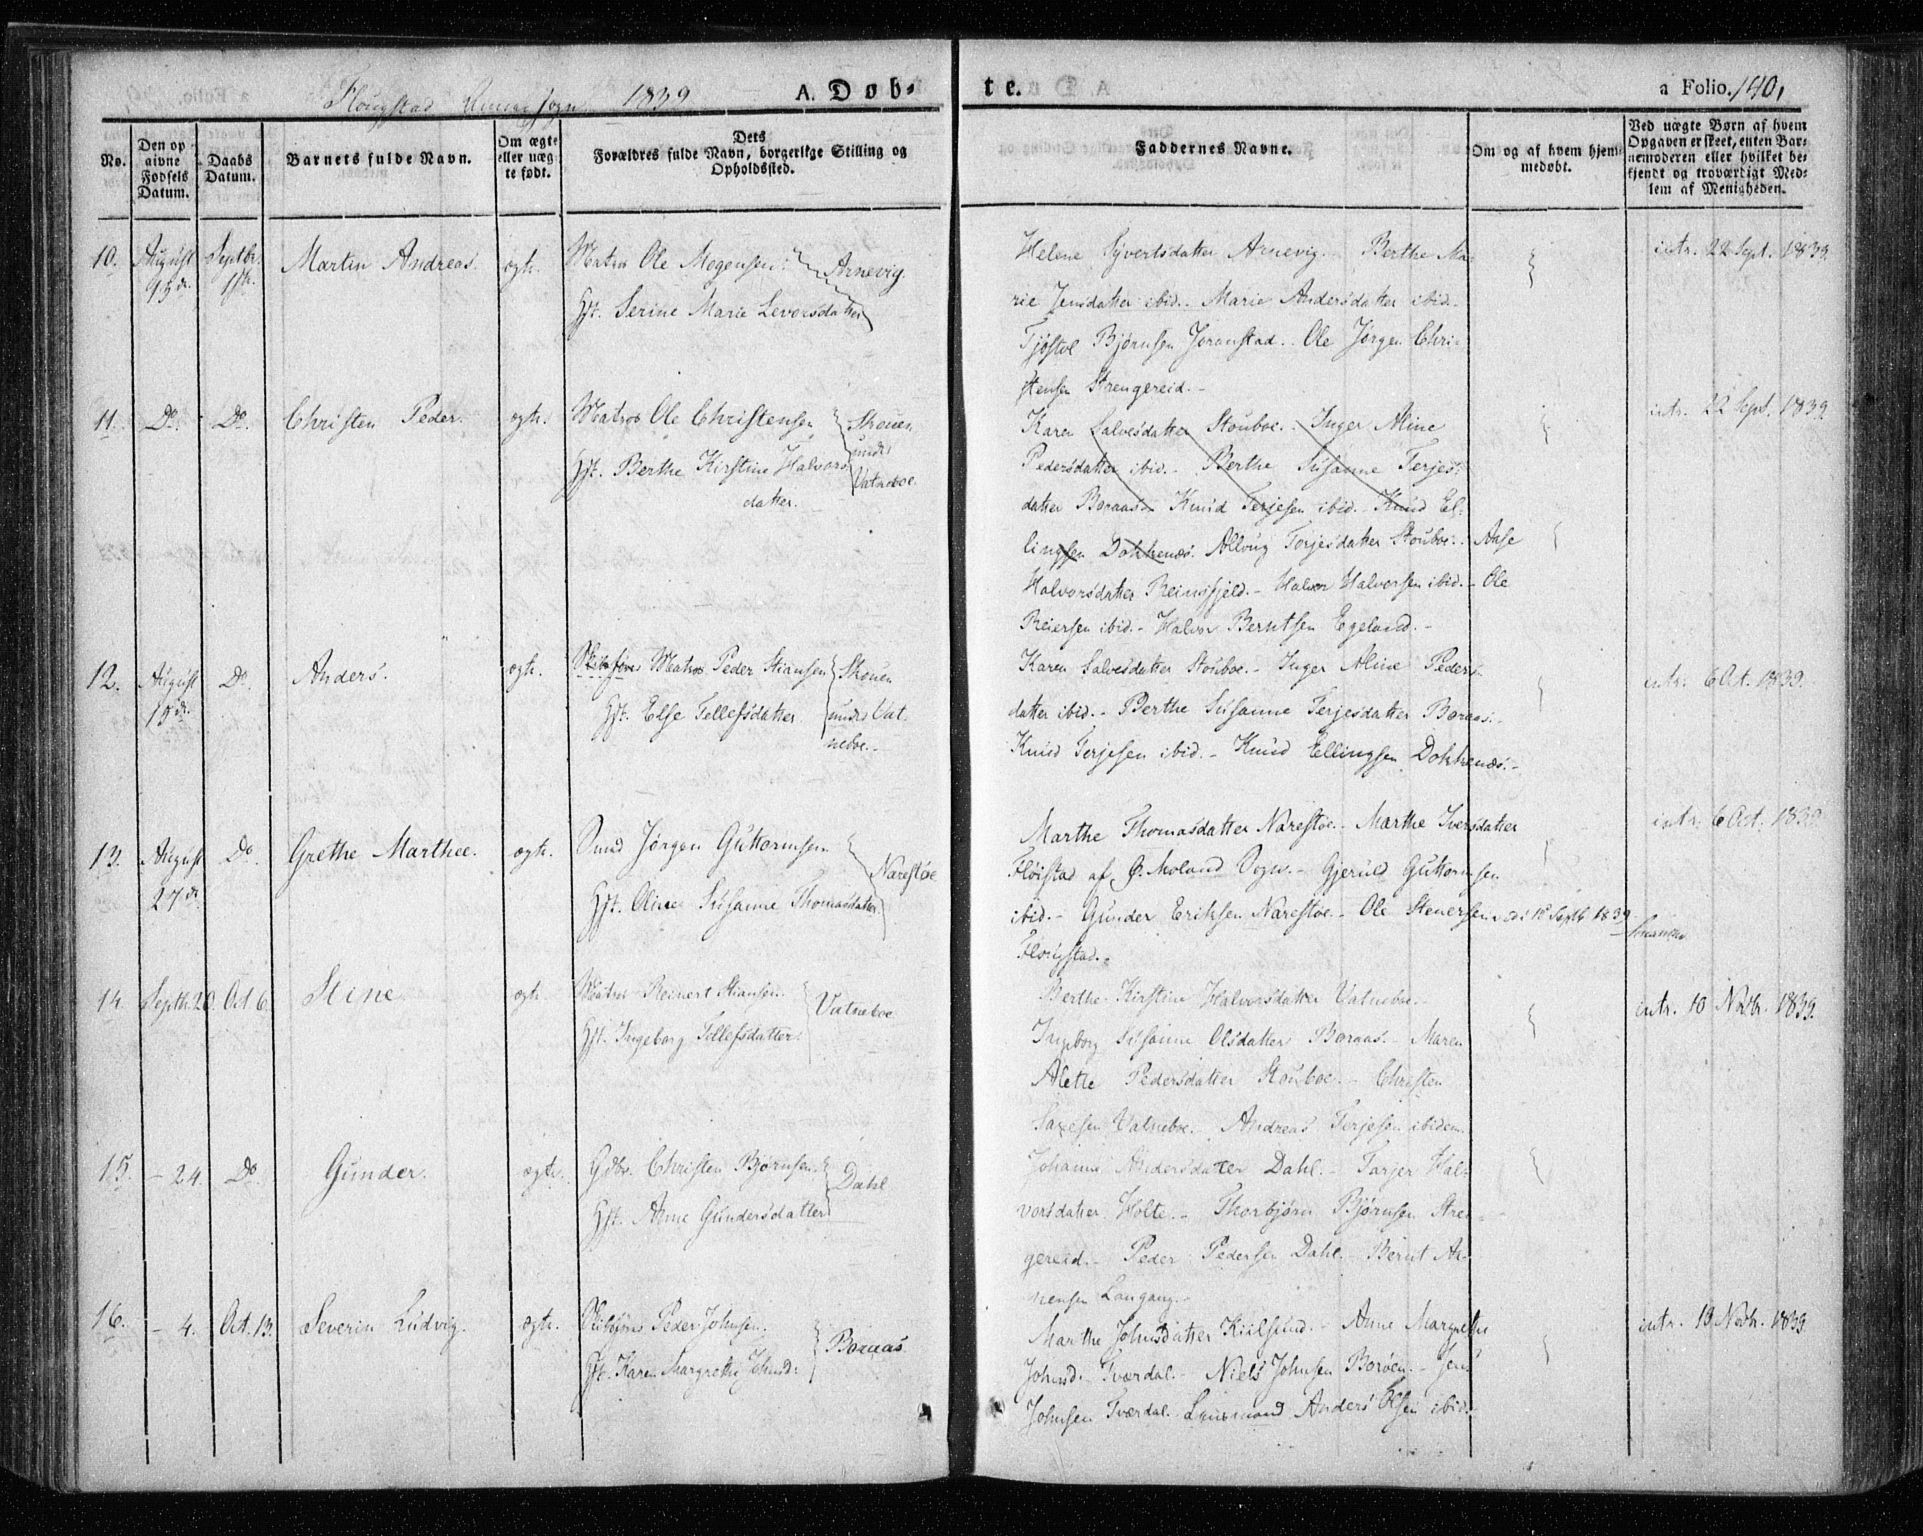 Flougstad Annexsogn 1839
A. Døb-
te.
a Folio. 140,
No.
Den op
givne
Fødsels
Datum.
Daabs
Datum.
Barnets fulde Navn.
Om ægte
eller uæg-
te født.
Dets
Forældres fulde Navn, borgerlige Stilling og
Opholdssted.
Faddernes Navne.
Om og af hvem hjem-
medøbt.
Ved uægte Børn af hvem
Opgaven er skeet, enten Bar-
nemoderen eller hvilket be-
kjendt og troværdigt Med-
lem af Menigheden.
10. August Septbr. Martin Andreas. ægte. Matros Ole Mogensen Arnevig.
Hst. Serine Marie Leversdatter
Helene Syvertsdatter Arnevig. Berthe Ma-
rie Jensdatter ibid. Marie Andersdatter ibid.
Tjøstol Bjørnsen Joranstad. Ole Jørgen Chri-
stensen Strengereid.-
intr. 22 Sept. 1839.
11. Do. Do. Christen Peder. ægte. Matros Ole Christensen Skouen
Hst. Berthe Kirstine Halvors- under
datter. Vatneboe
Karen Salvesdatter Stouboe. Inger Aline
Pedersdatter ibid.- Berthe Susanne Terjes-
datter Boraas. Knud Terjesen ibid.- Knud El-
lingsen Dokkenæs. Alloug Terjesdatter Stouboe. Aase
Halvorsdatter Reinsfjeld.- Halvor Halvorsen ibid.- Ole
Reiersen ibid.- Halvor Berntsen Egeland.-
intr. 22 Sept. 1839.
12. August Do. Anders. ægte. Matros Peder Stiansen Skouen
18de. Hst. Else Tellefsdatter under Vat-
neboe.-
Karen Salvesdatter Stouboe.- Inger Aline Peders-
datter ibid.- Berthe Susanne Terjesdatter Boraas.-
Knud Terjesen ibid.- Knud Ellingsen Dokkenæs.-
intr. 6 Oct. 1839.
13. August Do Grethe Marthee. ægte. Jørgen Guttormsen Narestøe
27de. Hst. Oline Susanne Thomasdatter
Marthe Thomasdatter Narestøe.- Marthe Iversdatter
Fløistad af Ø. Moland Sogn.- Gjeruld Guttormsen
ibid.- Gunder Eriksen Narestoe.- Ole Stenersen
Flougstad.-
intr. 6 Oct. 1839
14. Septb. 20. Oct. 6. Stine. ægte. Matros Steinert Stiansen. Vatneboe
Hst. Ingeborg Tellefsdatter
Berthe Kirstine Halvorsdatter Vatneboe.-
Ingeborg Susanne Olsdatter Boraas.- Maren
Alette Pedersdatter Stouboe.- Christen
Saxesen Vatneboe.- Andreas Terjesen ibidem
intr. 10 Novbr. 1839.
15. - 24. Do Gunder. ægte. Gdbr. Christen Bjørnsen Dahl
Hst. Anne Gundersdatter
Johanne Andersdatter Dahl.- Tarjer Hal-
vorsdatter Holte.- Thorbjørn Bjørnsen Stren-
gereid.- Peder Pedersen Dahl.- Bernt An-
nensen Langang.-
16. - 4. Oct. 13. Severin Ludvig. ægte. Peder Johnsen. Boraas.
Hst. Karen Margrethe Johnsd.
Marthe Johnsdatter Kiilsund.- Anne Margrethe
Johnsd. Tværdal.- Niels Johnsen Borøen.- Jens
Johnsen Tværdal. Lensmand Anders Olsen ibid.
intr. 13 Novbr. 1839